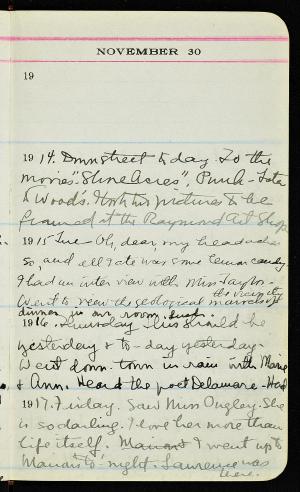 NOVEMBER 30
19
1914. Down street to day. To the
movies "Shore Acres", Punk - Later
to Wood's. Took two pictures to be
framed at the Raymond Art Shop
1915 Tue - Oh, dear, my head aches
so, and all I ate was some lemon candy
I had an interview with Miss Taylor.
Went to view the geological marvels of
the vicinity
dinner in our room. Lunch.
1916. Thursday This should be
yesterday & to-day yesterday.
Went down town in rain with Marie
& Ann. Heard the poet Delaware-
1917. Friday. Saw Miss Ongley. She
is so darling. I love her more than
life itself. I went up to
Marian's to-night. Lawrence was
there.